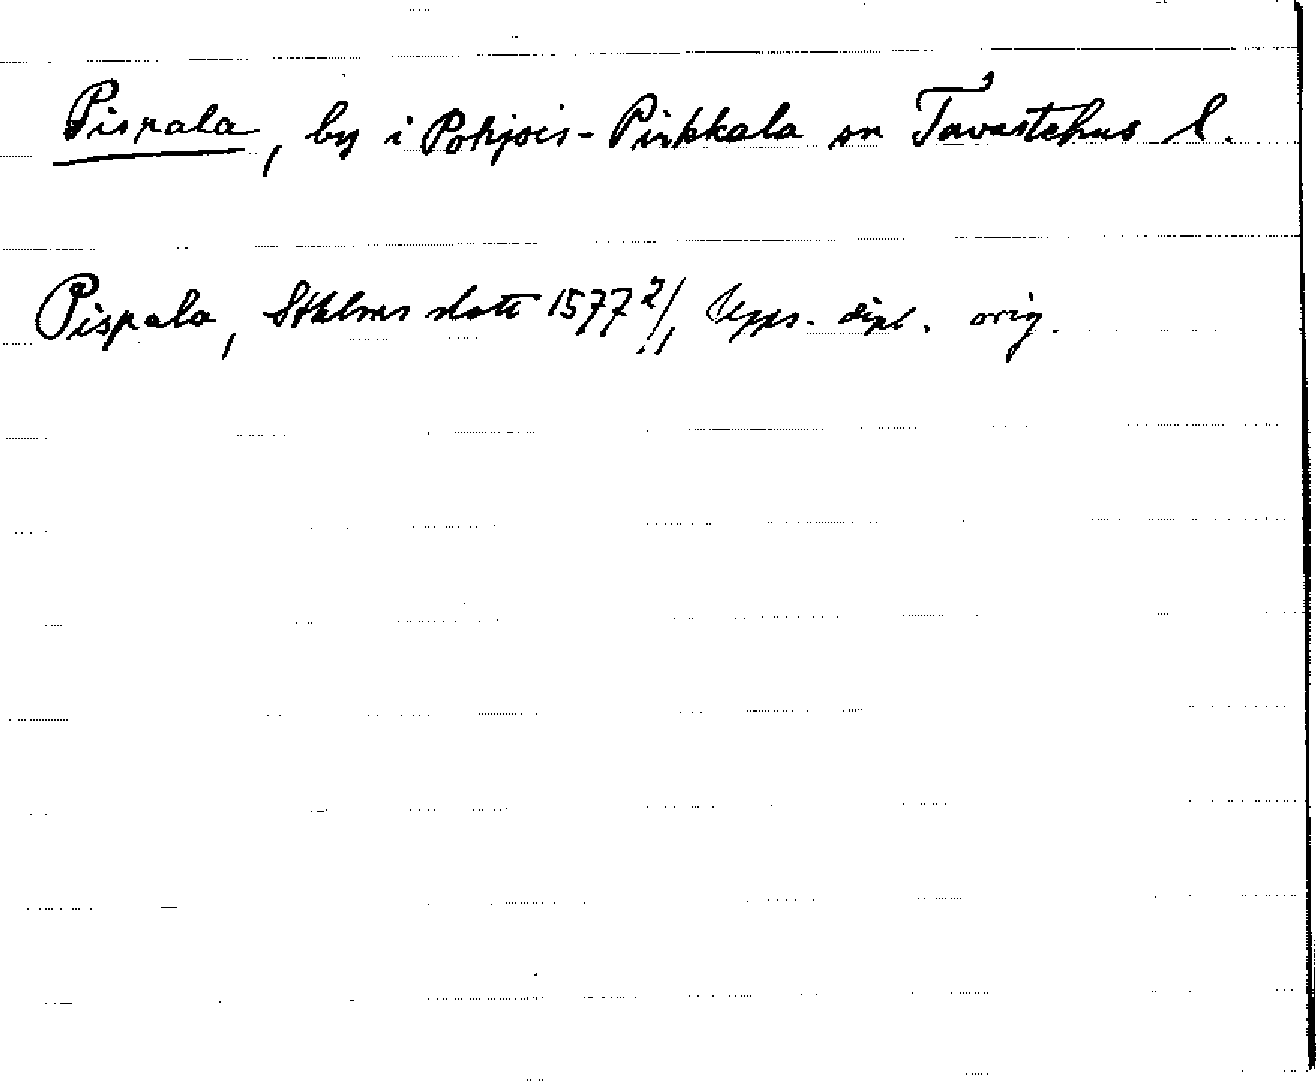 Pispala, by i Pohjois-Pirkkala sn Tavastehus l.
Pispala, Sthlms slott 1577 2/1, Upps. dipl. orig.